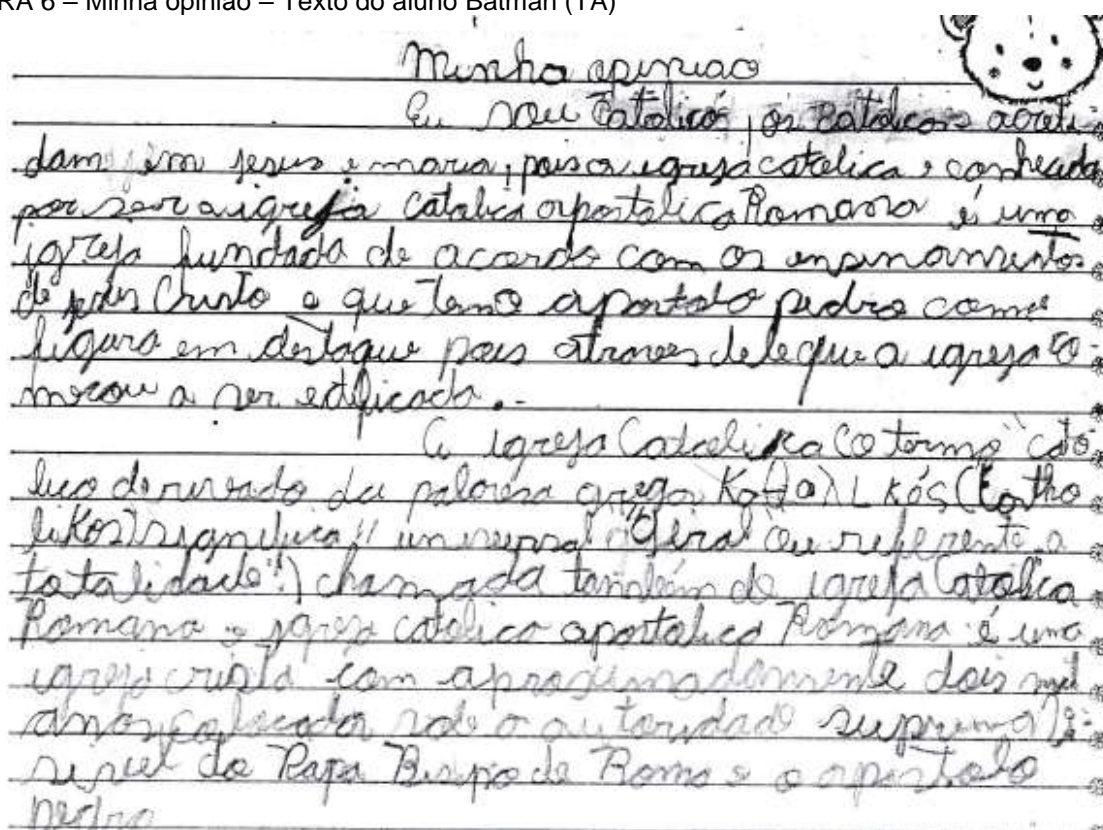 RA 6 – Minha opinião – Texto do aluno Batman (TA)
Minha opiniao
Eu sou Catolicos, os catolicos acreti-
dam em jesus e maria, pois a igreja catolica e conhecida
por ser a igreja catolica apostolica Romana é uma
igreja fundada de acordo com os ensinamentos
de jesus Christo e que tem o apostolo pedro como
figura em destaque pois atraves dele que a igreja co-
mecou a ser edificada.
A igreja Catolica (O termo "cato
lico derivado da palavra grega (Katho
likos) significa" universal "Geral" ou referente a
totalidade") chamada também de igreja Catolica
Romana e igreja catolica apostolica Romana é uma
igreja cristã com aproximadamente dois mil
anos colocada sob a autoridade suprema
do Papa Bispo de Roma e o apostolo
pedro